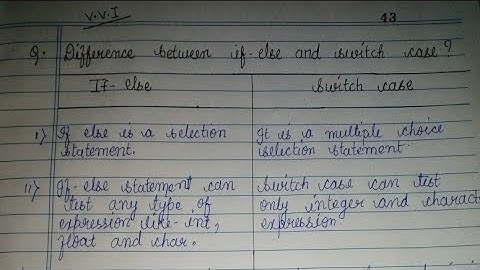 V.V.I
43
Q. Difference between if-else and switch case?
If-else
Switch case
i) If else is a selection statement.
It is a multiple choice selection statement.
ii) If-else statement can test any type of expression like-int, float and char.
Switch case can test only integer and charact expression.